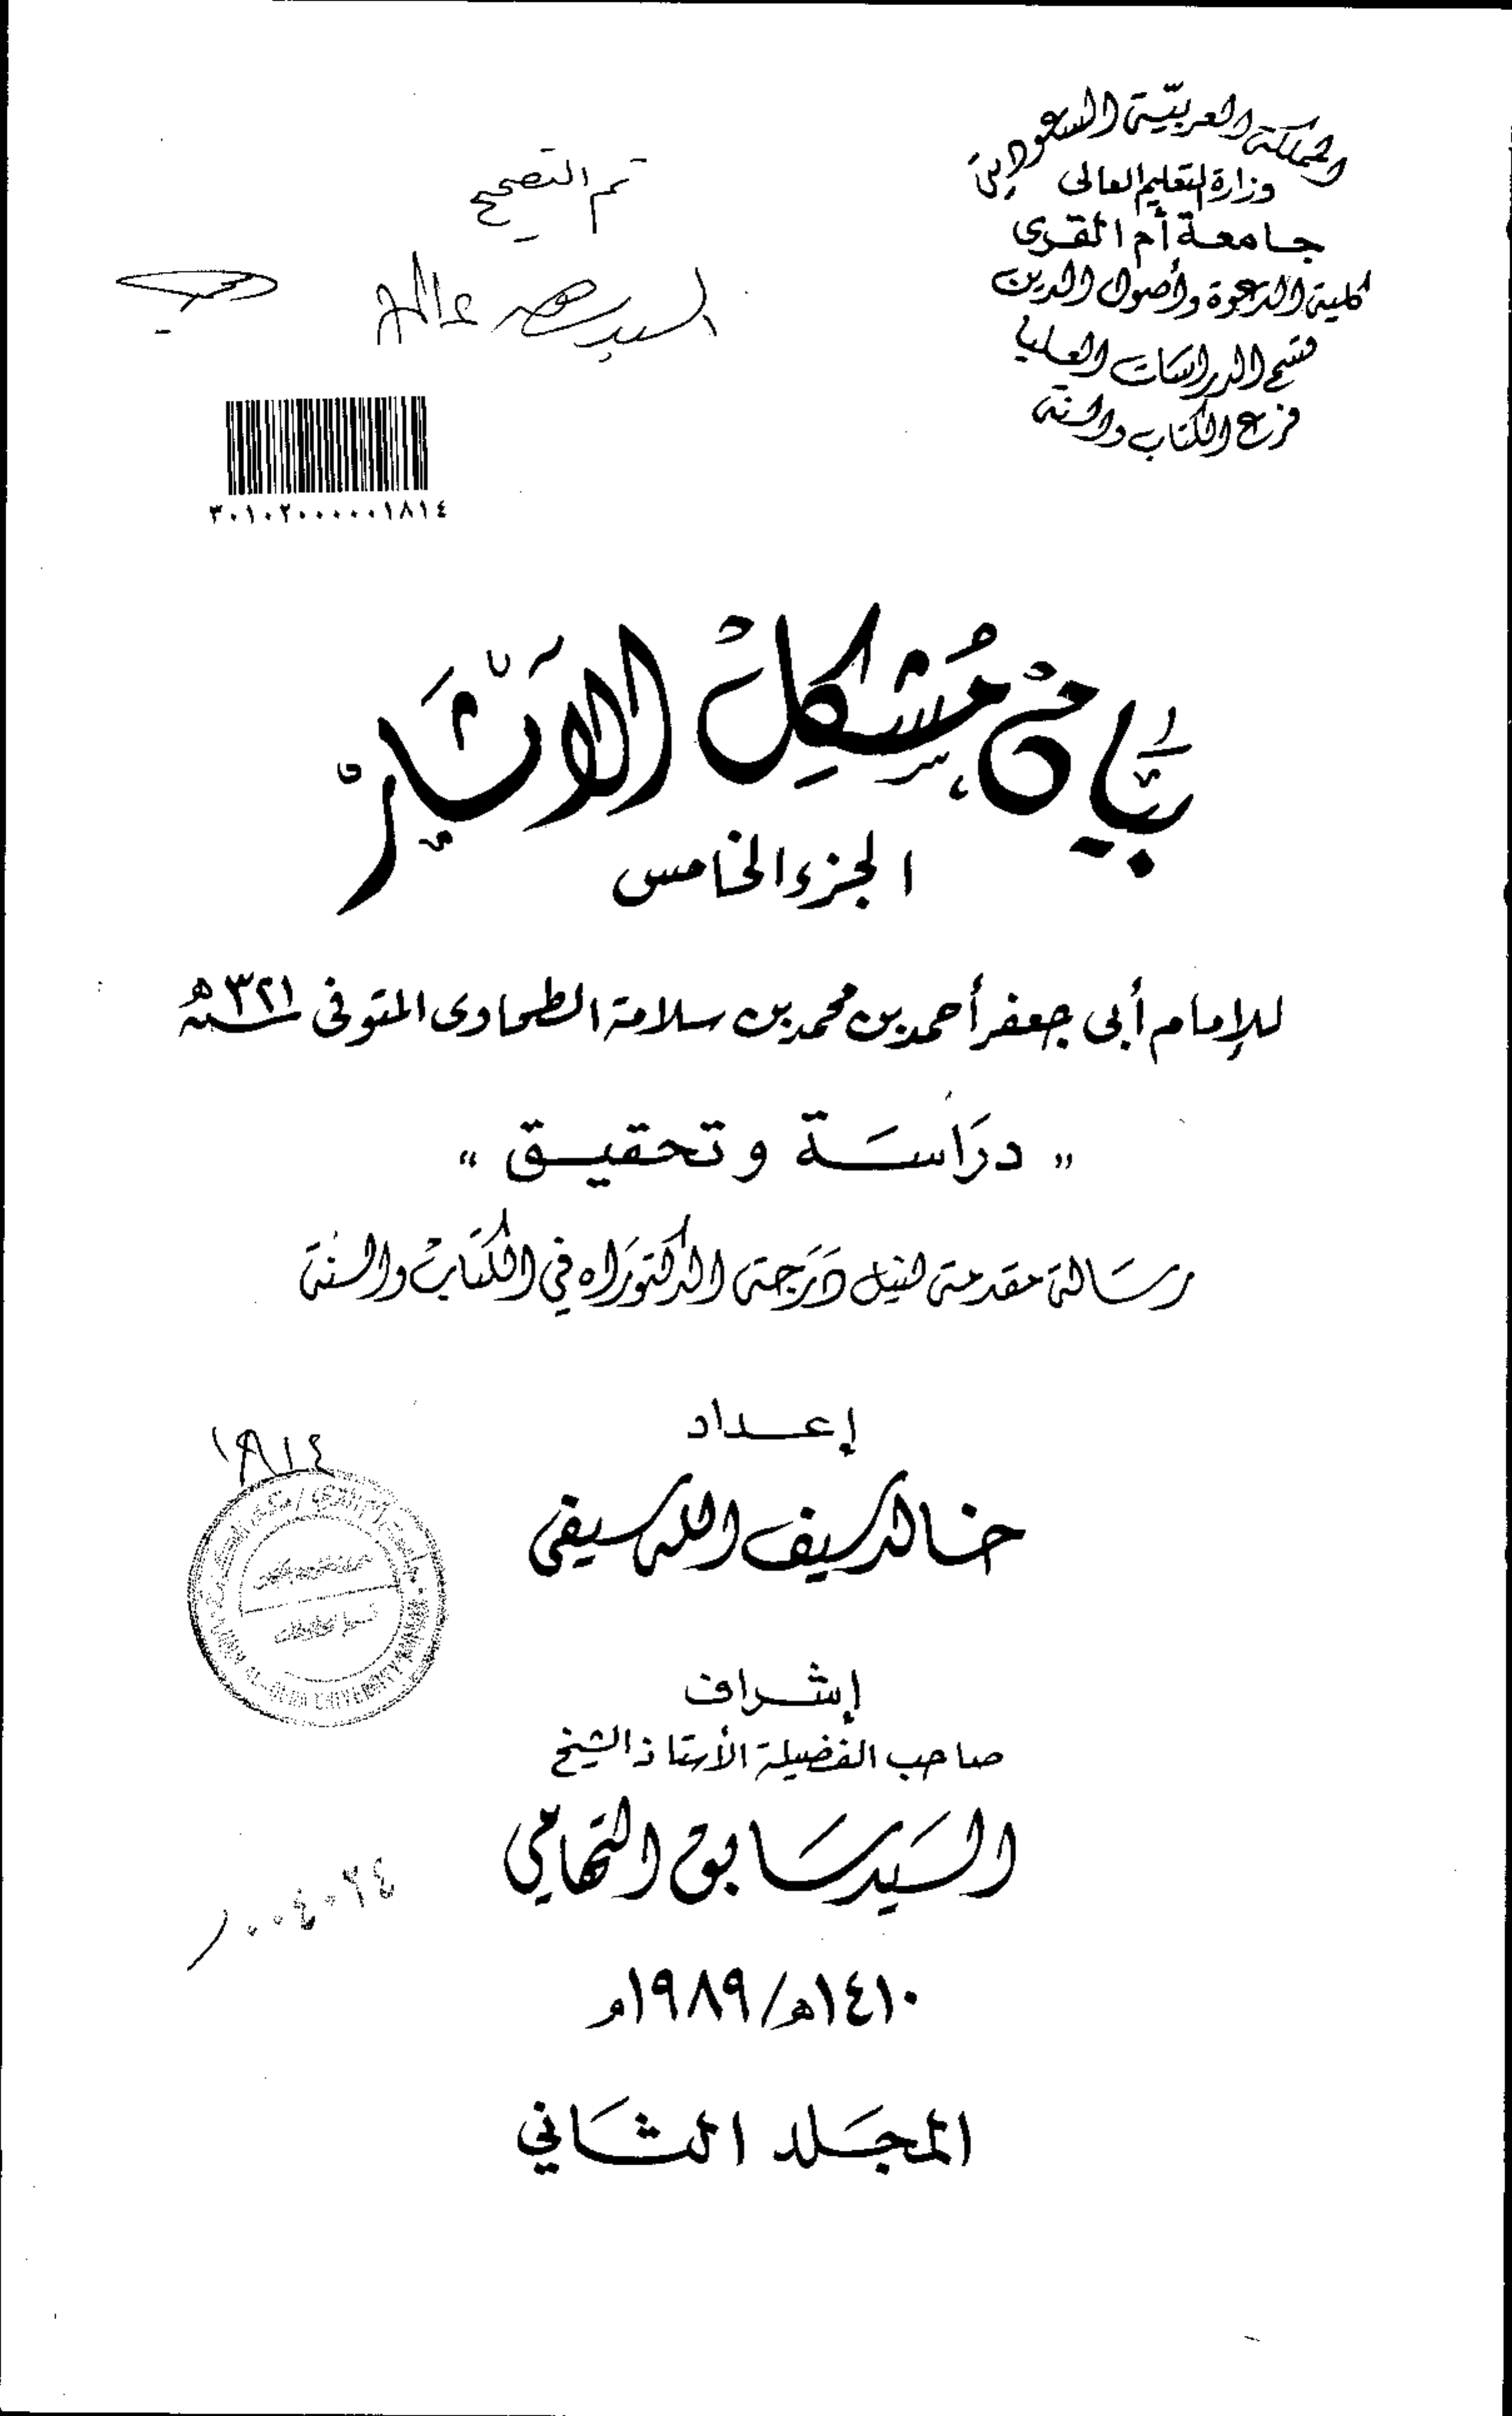 المملكة العربية السعودية
وزارة التعليم العالى
جامعة أم القرى
كلية الدعوة وأصول الدين
قسم الدراسات العليا
فرع الكتاب والسنة
تم التصحيح
السيد
٣٠١٠٢٠٠٠٠٠١٨١٤
بَيَان مُشْكِل الآثَار
الجزء الخامس
للإمام أبى جعفر أحمد بن محمد بن سلامة الطحاوى المتوفى سنة ٣٢١ هـ
" دراسة وتحقيق "
رسالة مقدمة لنيل درجة الدكتوراه في الكتاب والسنة
إعداد
خالد سيف الله سيفى
١٨١٤
إشراف
صاحب الفضيلة الأستاذ الشيخ
السيد سابق التهامي
١٠٠٤٠٢٤
١٤١٠هـ/١٩٨٩م
المجلد الثاني